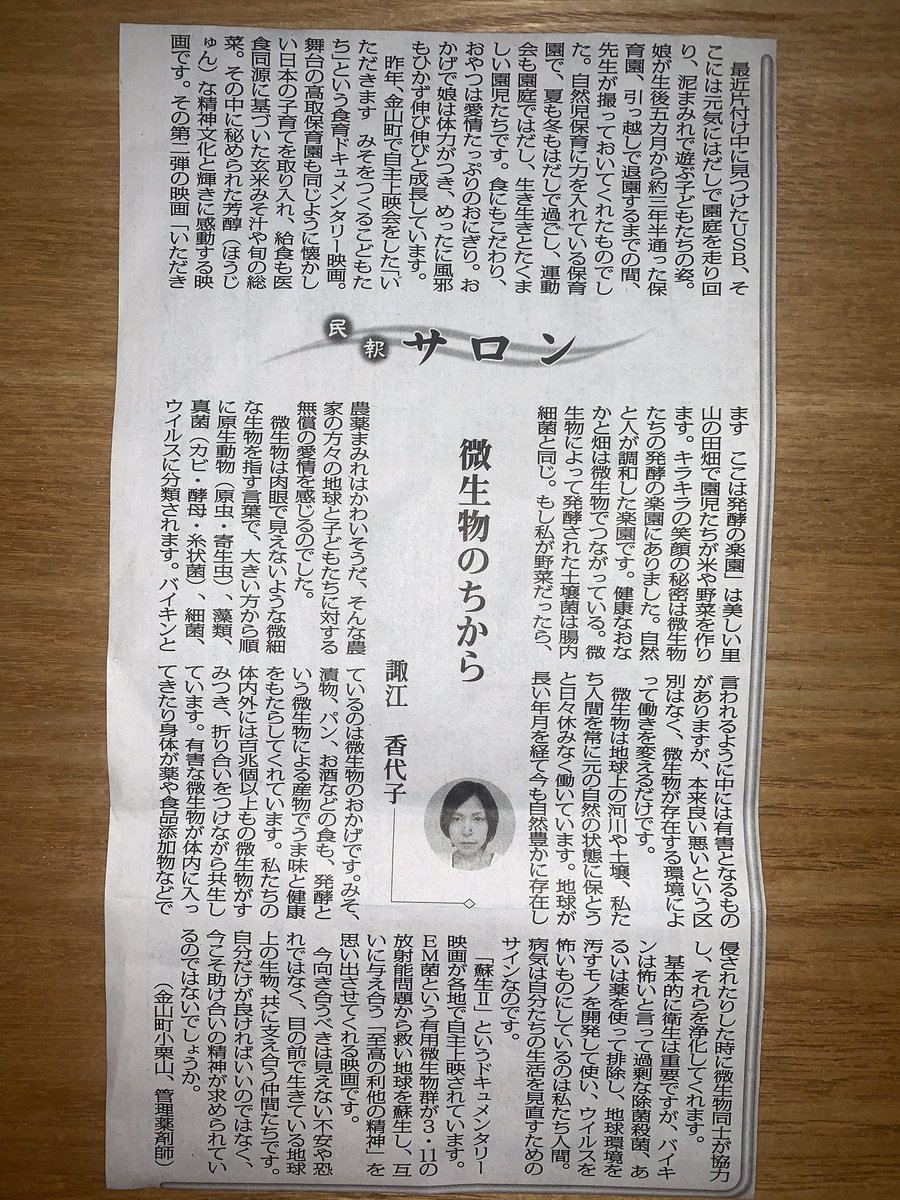 民報サロン
微生物のちから
諏江　香代子
最近片付け中に見つけたUSB、そ
こには元気にはだしで園庭を走り回
り、泥まみれで遊ぶ子どもたちの姿。
娘が生後五カ月から約三年半通った保
育園、引っ越しで退園するまでの間、
先生が撮っておいてくれたものでし
た。自然児保育に力を入れている保育
園で、夏も冬もはだしで過ごし、運動
会も園庭ではだし、生き生きとたくま
しい園児たちです。食にもこだわり、
おやつは愛情たっぷりのおにぎり。お
かげで娘は体力がつき、めったに風邪
もひかず伸び伸びと成長しています。
昨年、金山町で自主上映会をした「い
ただきます　みそをつくるこどもた
ち」という食育ドキュメンタリー映画。
舞台の高取保育園も同じように懐かし
い日本の子育てを取り入れ、給食も医
食同源に基づいた玄米みそ汁や旬の総
菜。その中に秘められた芳醇（ほうじ
ゅん）な精神文化と輝きに感動する映
画です。その第二弾の映画「いただき
ます　ここは発酵の楽園」は美しい里
山の田畑で園児たちが米や野菜を作り
ます。キラキラの笑顔の秘密は微生物
たちの発酵の楽園にありました。自然
と人が調和した楽園です。健康なおな
かと畑は微生物でつながっている。微
生物によって発酵された土壌菌は腸内
細菌と同じ。もし私が野菜だったら、
農薬まみれはかわいそうだ、そんな農
家の方々の地球と子どもたちに対する
無償の愛情を感じるのでした。
微生物は肉眼で見えないような微細
な生物を指す言葉で、大きい方から順
に原生動物（原虫・寄生虫）、藻類、
真菌（カビ・酵母・糸状菌）、細菌、
ウイルスに分類されます。バイキンと
言われるように中には有害となるもの
がありますが、本来良い悪いという区
別はなく、微生物が存在する環境によ
って働きを変えるだけです。
微生物は地球上の河川や土壌、私た
ち人間を常に元の自然の状態に保とう
と日々休みなく働いています。地球が
長い年月を経て今も自然豊かに存在し
ているのは微生物のおかげです。みそ、
漬物、パン、お酒などの食も、発酵と
いう微生物による産物でうま味と健康
をもたらしてくれています。私たちの
体内外には百兆個以上もの微生物がす
みつき、折り合いをつけながら共生し
ています。有害な微生物が体内に入っ
てきたり身体が薬や食品添加物などで
侵されたりした時に微生物同士が協力
し、それらを浄化してくれます。
基本的に衛生は重要ですが、バイキ
ンは怖いと言って過剰な除菌殺菌、あ
るいは薬を使って排除し、地球環境を
汚すモノを開発して使い、ウイルスを
怖いものにしているのは私たち人間。
病気は自分たちの生活を見直すための
サインなのです。
「蘇生Ⅱ」というドキュメンタリー
映画が各地で自主上映されています。
EM菌という有用微生物群が3・11の
放射能問題から救い地球を蘇生し、互
いに与え合う「至高の利他の精神」を
思い出させてくれる映画です。
今向き合うべきは見えない不安や恐
れではなく、目の前で生きている地球
上の生物、共に支え合う仲間たちです。
自分だけが良ければいいのではなく、
今こそ助け合いの精神が求められてい
るのではないでしょうか。
（金山町小栗山、管理薬剤師）